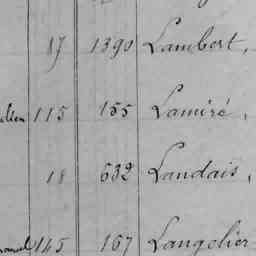 17 1390 Lambert,
115 155 Lamiré,
18 632 Landais,
145 167 Langelier